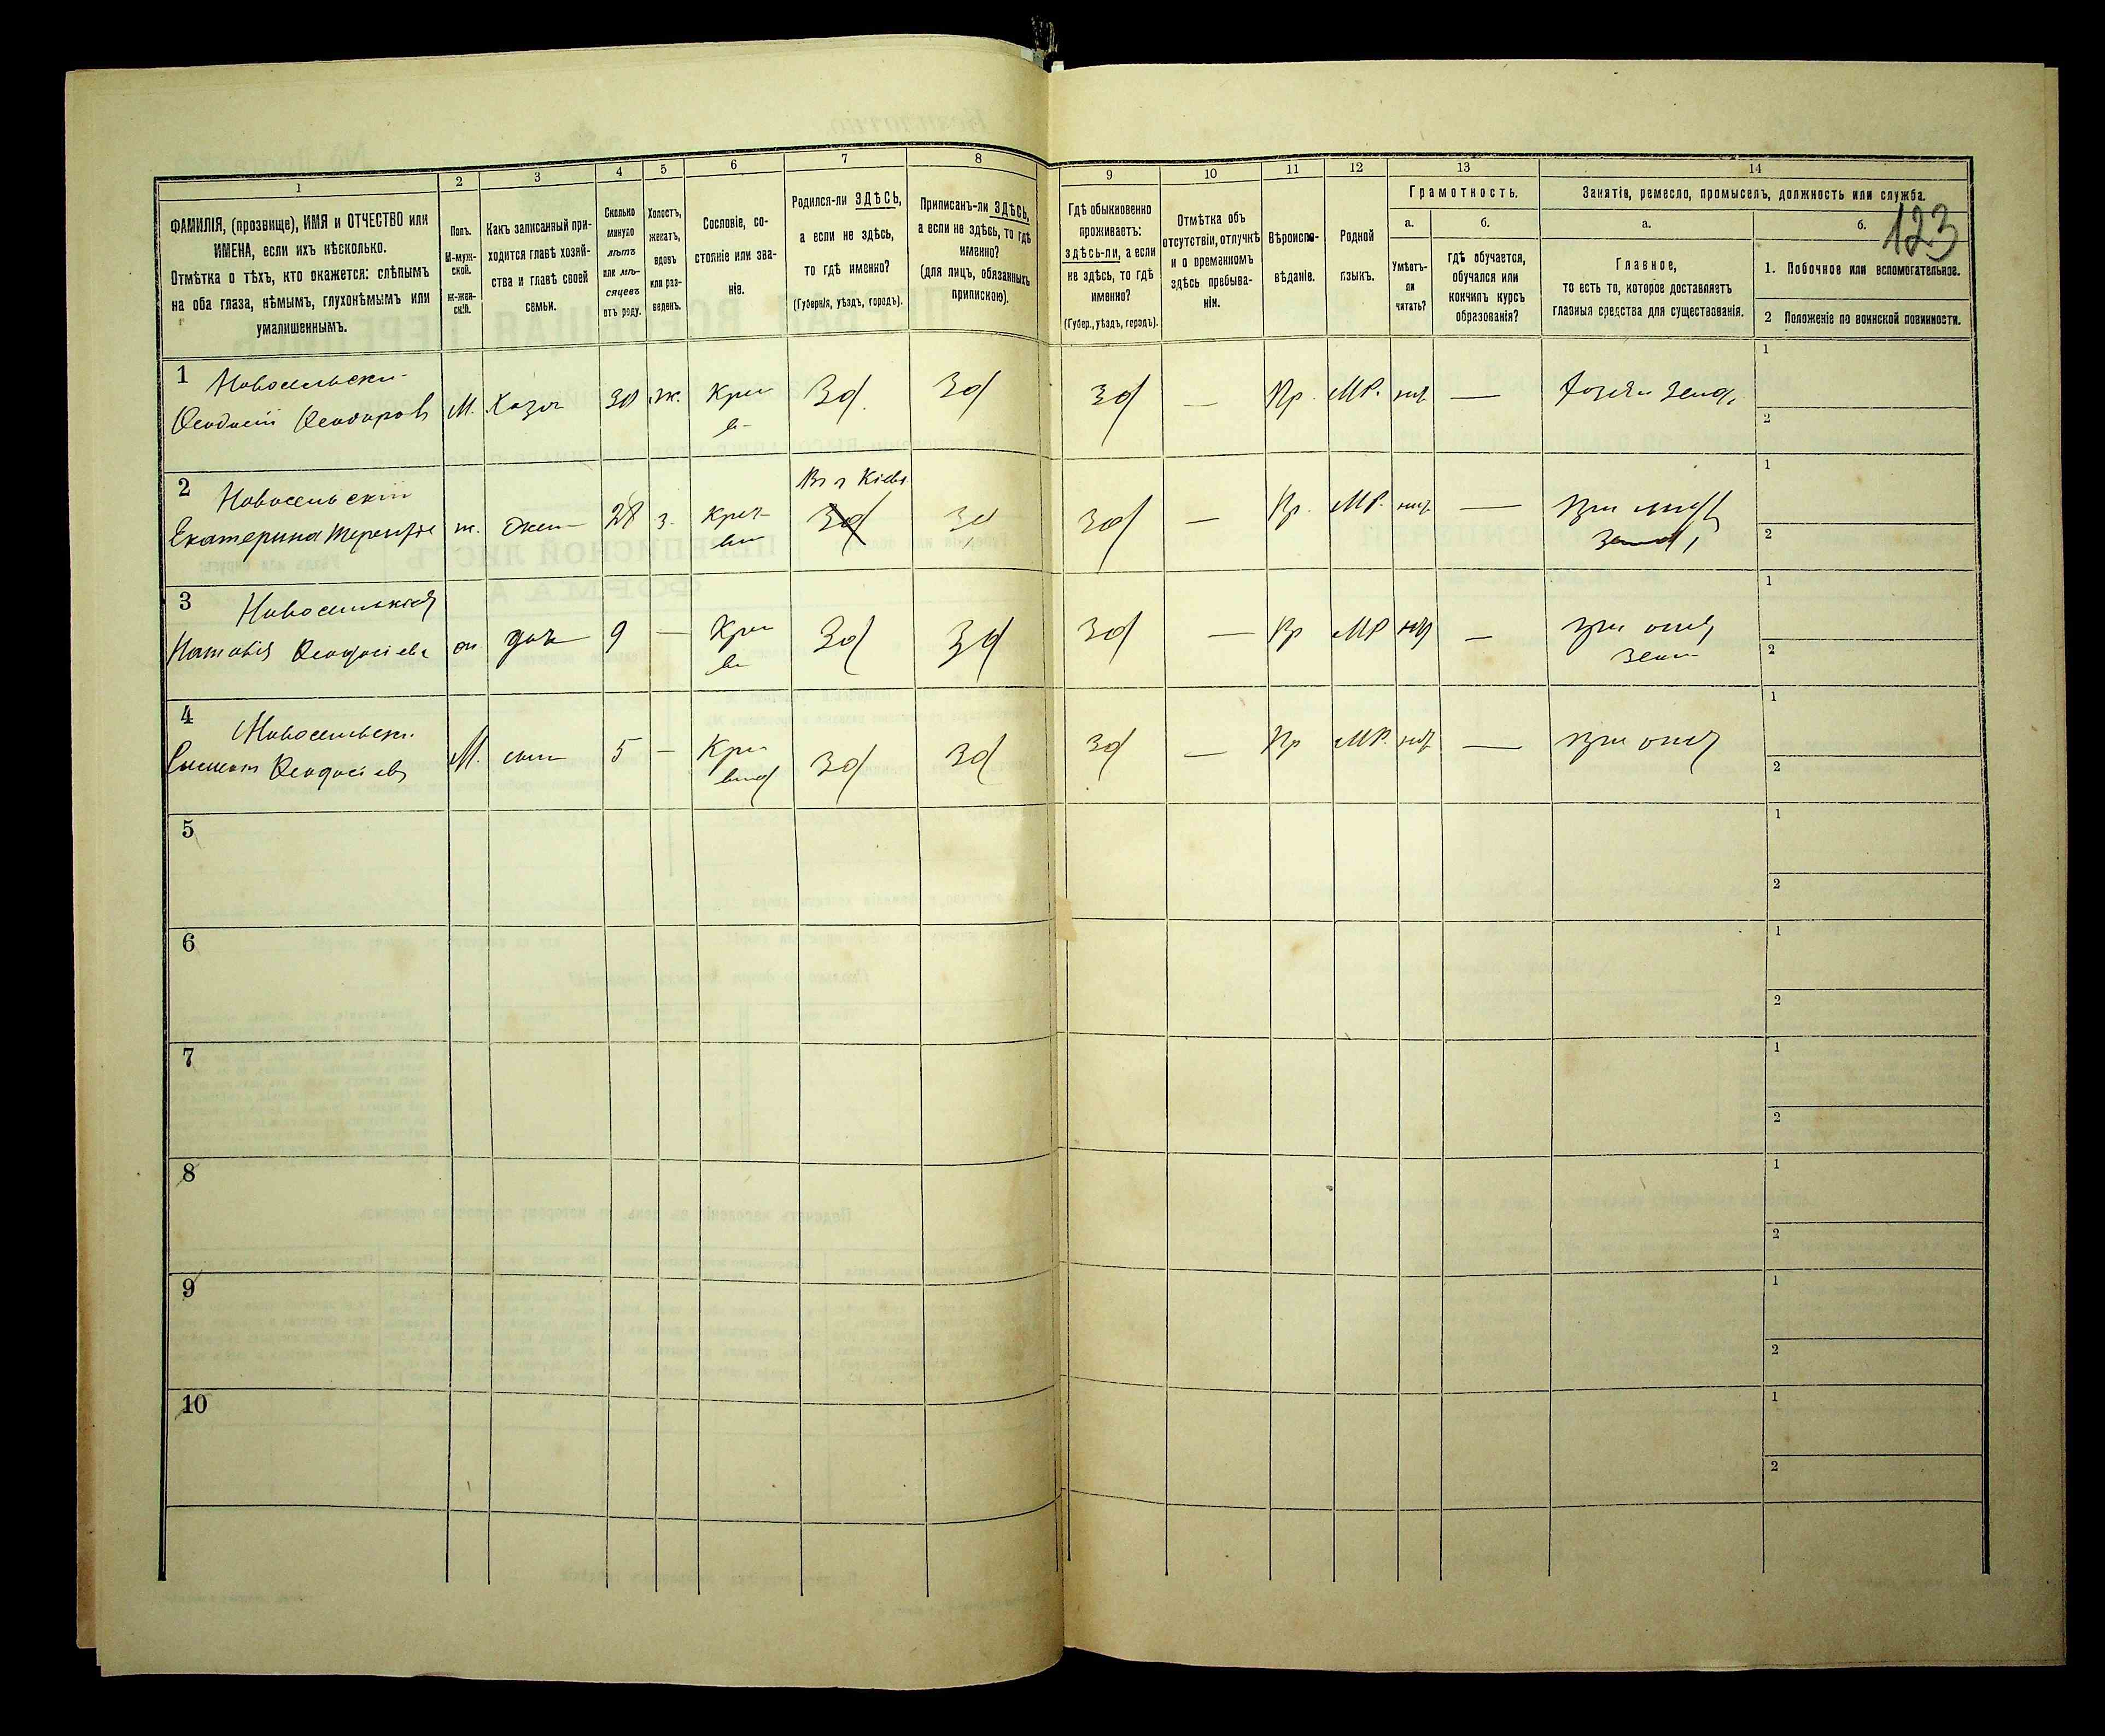 1 2 3 4 5 6 7 8 9 10 11 12 13 14
ФАМИЛІЯ, (прозвище), ИМЯ и ОТЧЕСТВО или
ИМЕНА, если ихъ нѣсколько.
Отмѣтка о тѣхъ, кто окажется: слѣпымъ
на оба глаза, нѣмымъ, глухонѣмымъ или
умалишеннымъ.
Полъ.
М-муж-
ской.
Ж-жен-
скій.
Какъ записанный при-
ходится главѣ хозяй-
ства и главѣ своей
семьи.
Сколько
минуло
лѣтъ
или мѣ-
сяцевъ
отъ роду.
Холостъ,
женатъ,
вдовъ
или раз-
веденъ.
Сословіе, со-
стояніе или зва-
ніе.
Родился-ли ЗДѢСЬ,
а если не здѣсь,
то гдѣ именно?
(Губернія, уѣздъ, городъ).
Приписанъ-ли ЗДѢСЬ,
а если не здѣсь, то гдѣ
именно?
(для лицъ, обязанныхъ
припискою).
Гдѣ обыкновенно
проживаетъ:
здѣсь-ли, а если
не здѣсь, то гдѣ
именно?
(Губер., уѣздъ, городъ).
Отмѣтка объ
отсутствіи, отлучкѣ
и о временномъ
здѣсь пребыва-
ніи.
Вѣроиспо-
вѣданіе.
Родной
языкъ.
Грамотность.
а.
Умѣетъ-
ли
читать?
б.
гдѣ обучается,
обучался или
кончилъ курсъ
образованія?
Занятія, ремесло, промыселъ, должность или служба.
а.
Главное,
то есть то, которое доставляетъ
главныя средства для существованія.
б.
123
1. Побочное или вспомогательное.
2 Положеніе по воинской повинности.
1 Новосельски
Феодосій Феодоровъ М. Хозя 30 ж. Крес Зд Зд Зд — Пр. МР. нѣт — Хозяи земл 1
2
В г Кіевѣ
2 Новосельскій
Екатерина ж. жен 28 з. Крес Зд Зд Зд — Пр. МР. нѣт — При 1
2
3 Новосельская
Наталія Феодосіева доч 9 — Крес Зд Зд Зд — Пр МР нѣт — при отцѣ 1
2
4 Новосельски
Феодосіев М. сын 5 — Крес Зд Зд Зд — Пр МР. нѣт — при отцѣ 1
2
5 1
2
6 1
2
7 1
2
8 1
2
9 1
2
10 1
2